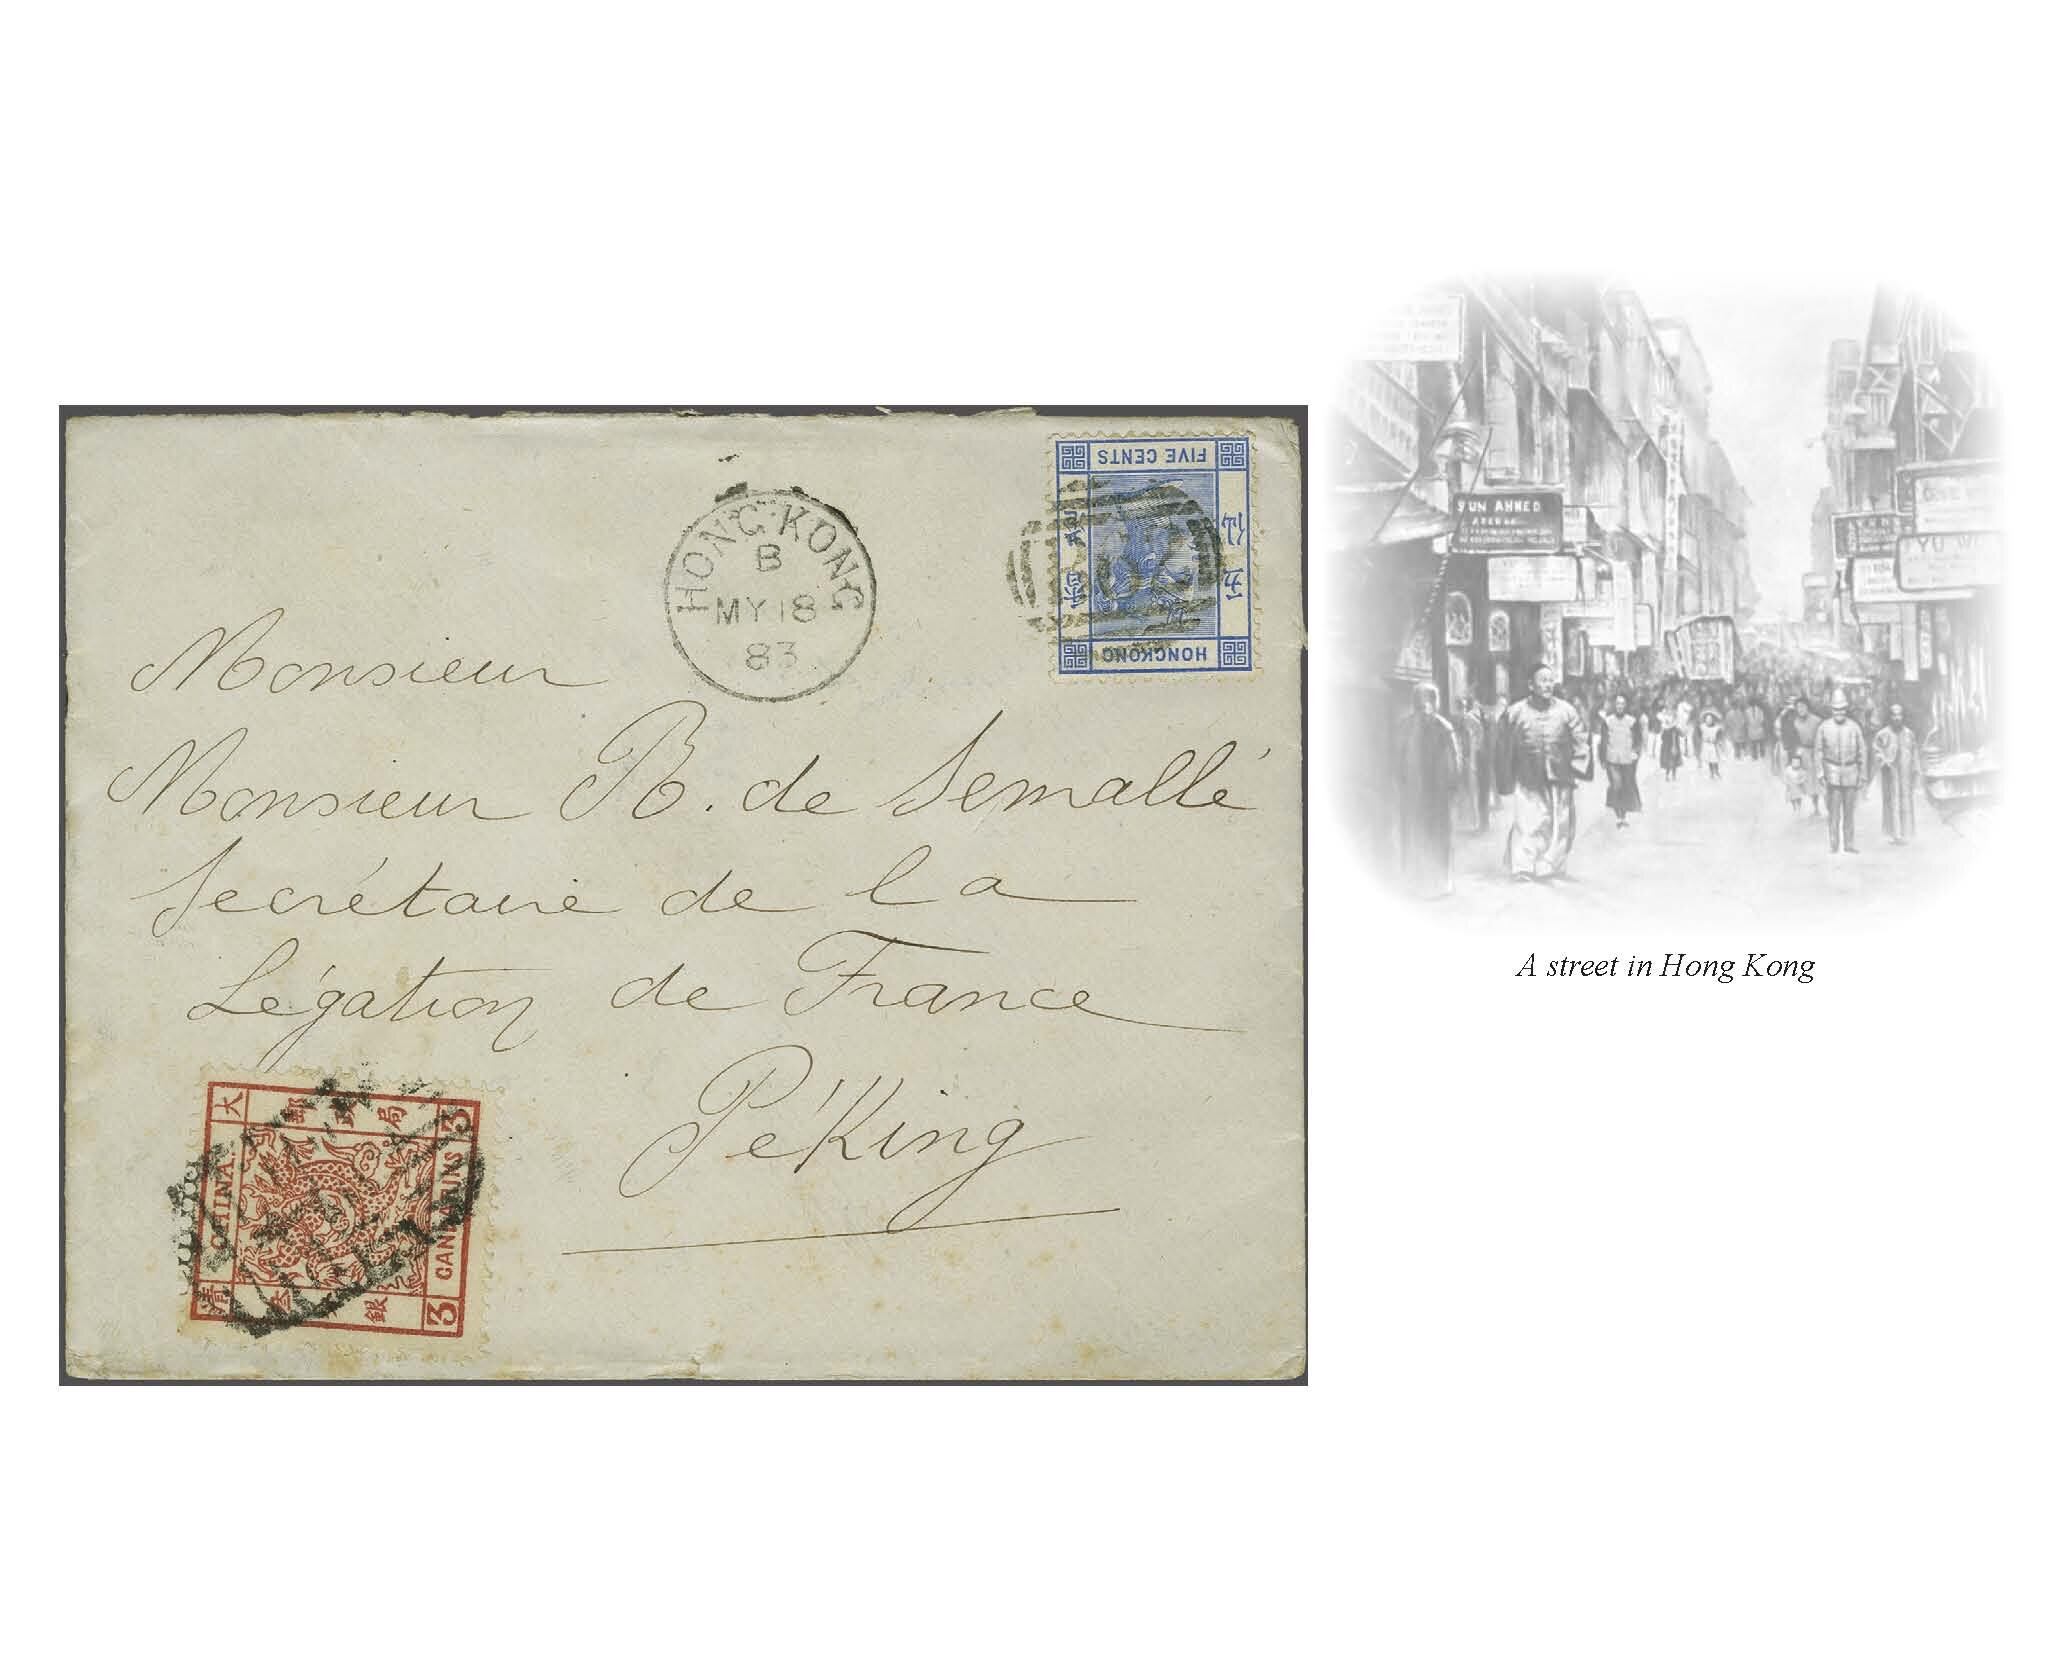 HONG KONG
B
MY 18
83
FIVE CENTS
HONGKONG
Monsieur
Monsieur R. de Semallé
Secrétaire de la
Légation de France
Péking
大 郵 政 局 3
CHINA
CANDARINS
清 叁 銀 3
YUN AHMED
A street in Hong Kong